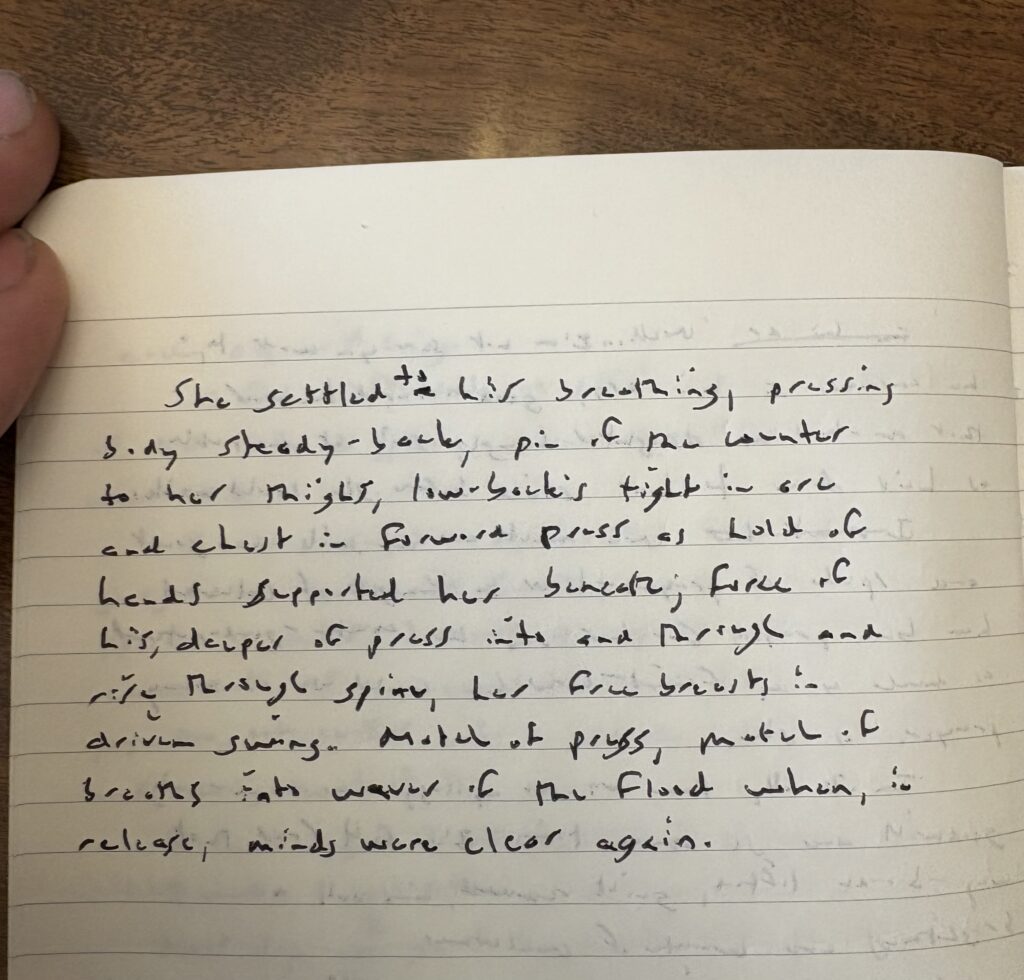 She settled to his breathing, pressing
body steady-back, pin of the counter
to her thighs, low-back's tight in arc
and chest in forward press as hold of
hands supported her beneath; force of
his, deeper of press into and through and
rise through spine, her free breasts in
driven swing. Match of press, match of
breaths into waver of the flood when, in
release, minds were clear again.